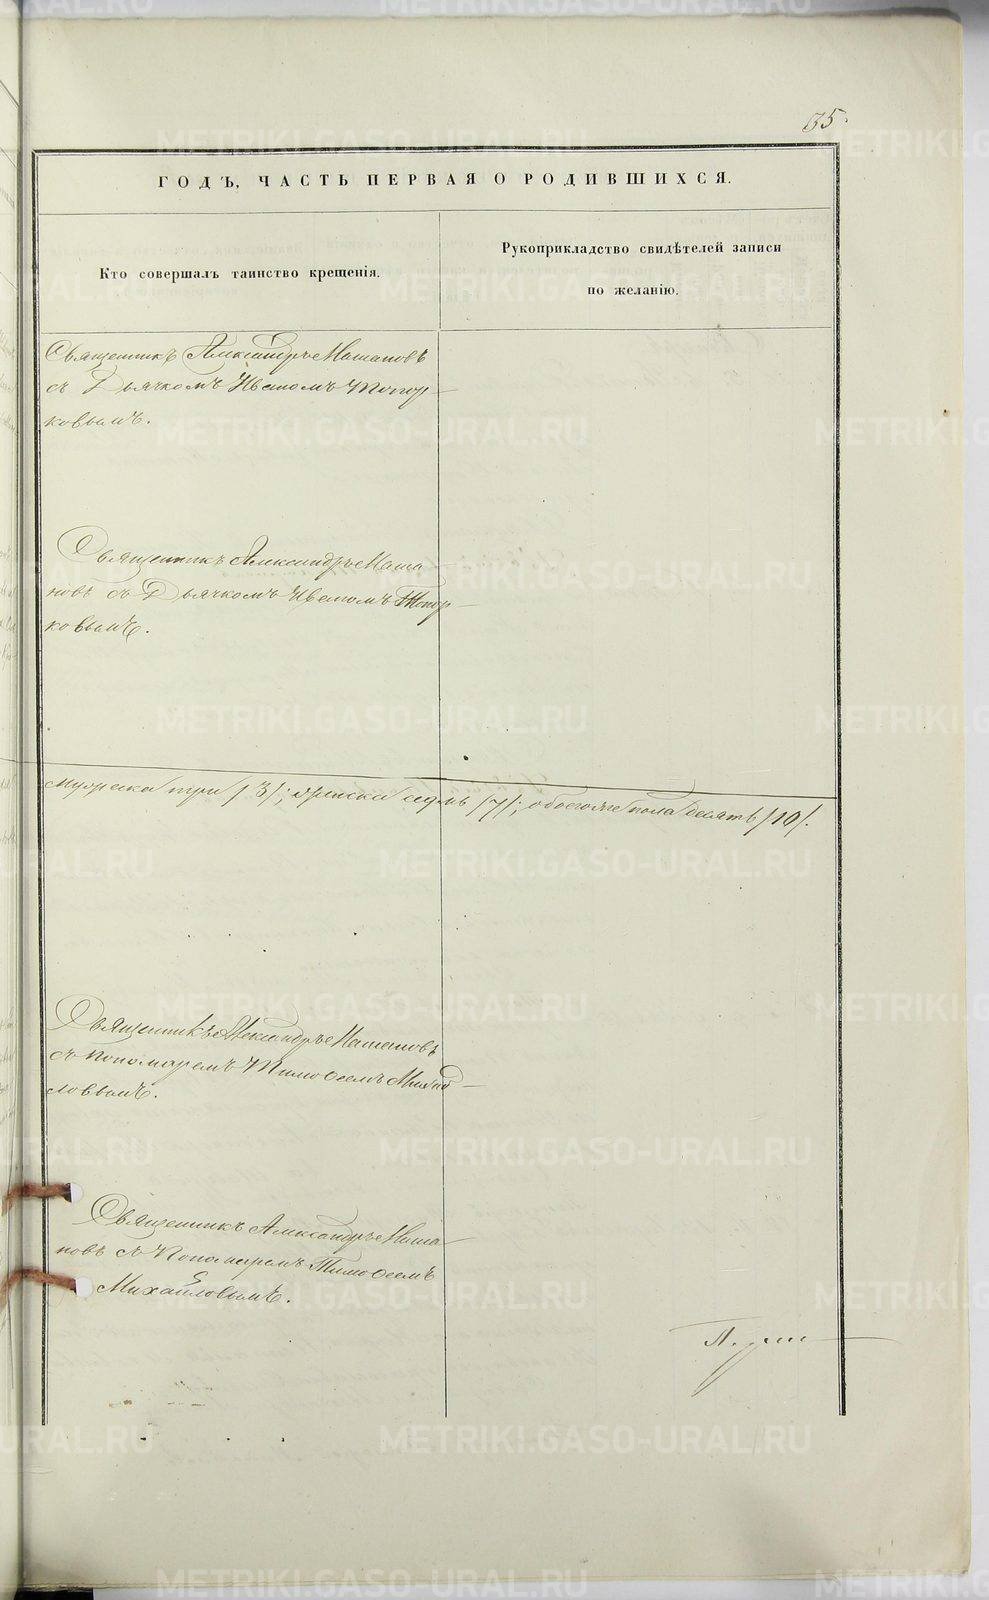 35.
ГОДЪ, ЧАСТЬ ПЕРВАЯ О РОДИВШИХСЯ.
Кто совершалъ таинство крещенія.
Рукоприкладство свидѣтелей записи
по желанію.
Священникъ Александръ Нашановъ
съ Дьячкомъ Иваномъ Топор-
ковымъ.
Священникъ Александръ Наша-
новъ съ Дьячкомъ Иваномъ Топор-
ковымъ.
мужеска три /3/; женска седмь /7/; обоего же пола десять /10/.
Священникъ Александръ Нашановъ
съ Пономаремъ Тимоѳеемъ Михай-
ловымъ.
Священникъ Александръ Наша-
новъ съ Пономаремъ Тимоѳеемъ
Михайловымъ.
METRIKI.GASO-URAL.RU